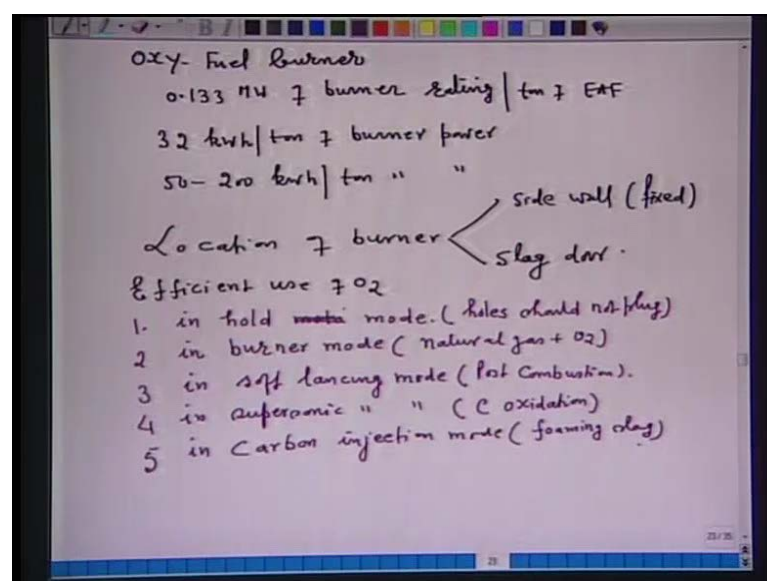 Oxy-Fuel burner
0.133 MW of burner rating | ton of EAF
32 kwh | ton of burner power
50-200 kwh | ton " "
side wall (fixed)
Location of burner
slag door.
Efficient use of O2
1. in hold mode. (holes should not plug)
2 in burner mode (natural gas + O2)
3 in soft lancing mode (Post Combustion).
4 in supersonic " " (C oxidation)
5 in Carbon injection mode (foaming slag)
23/35
23